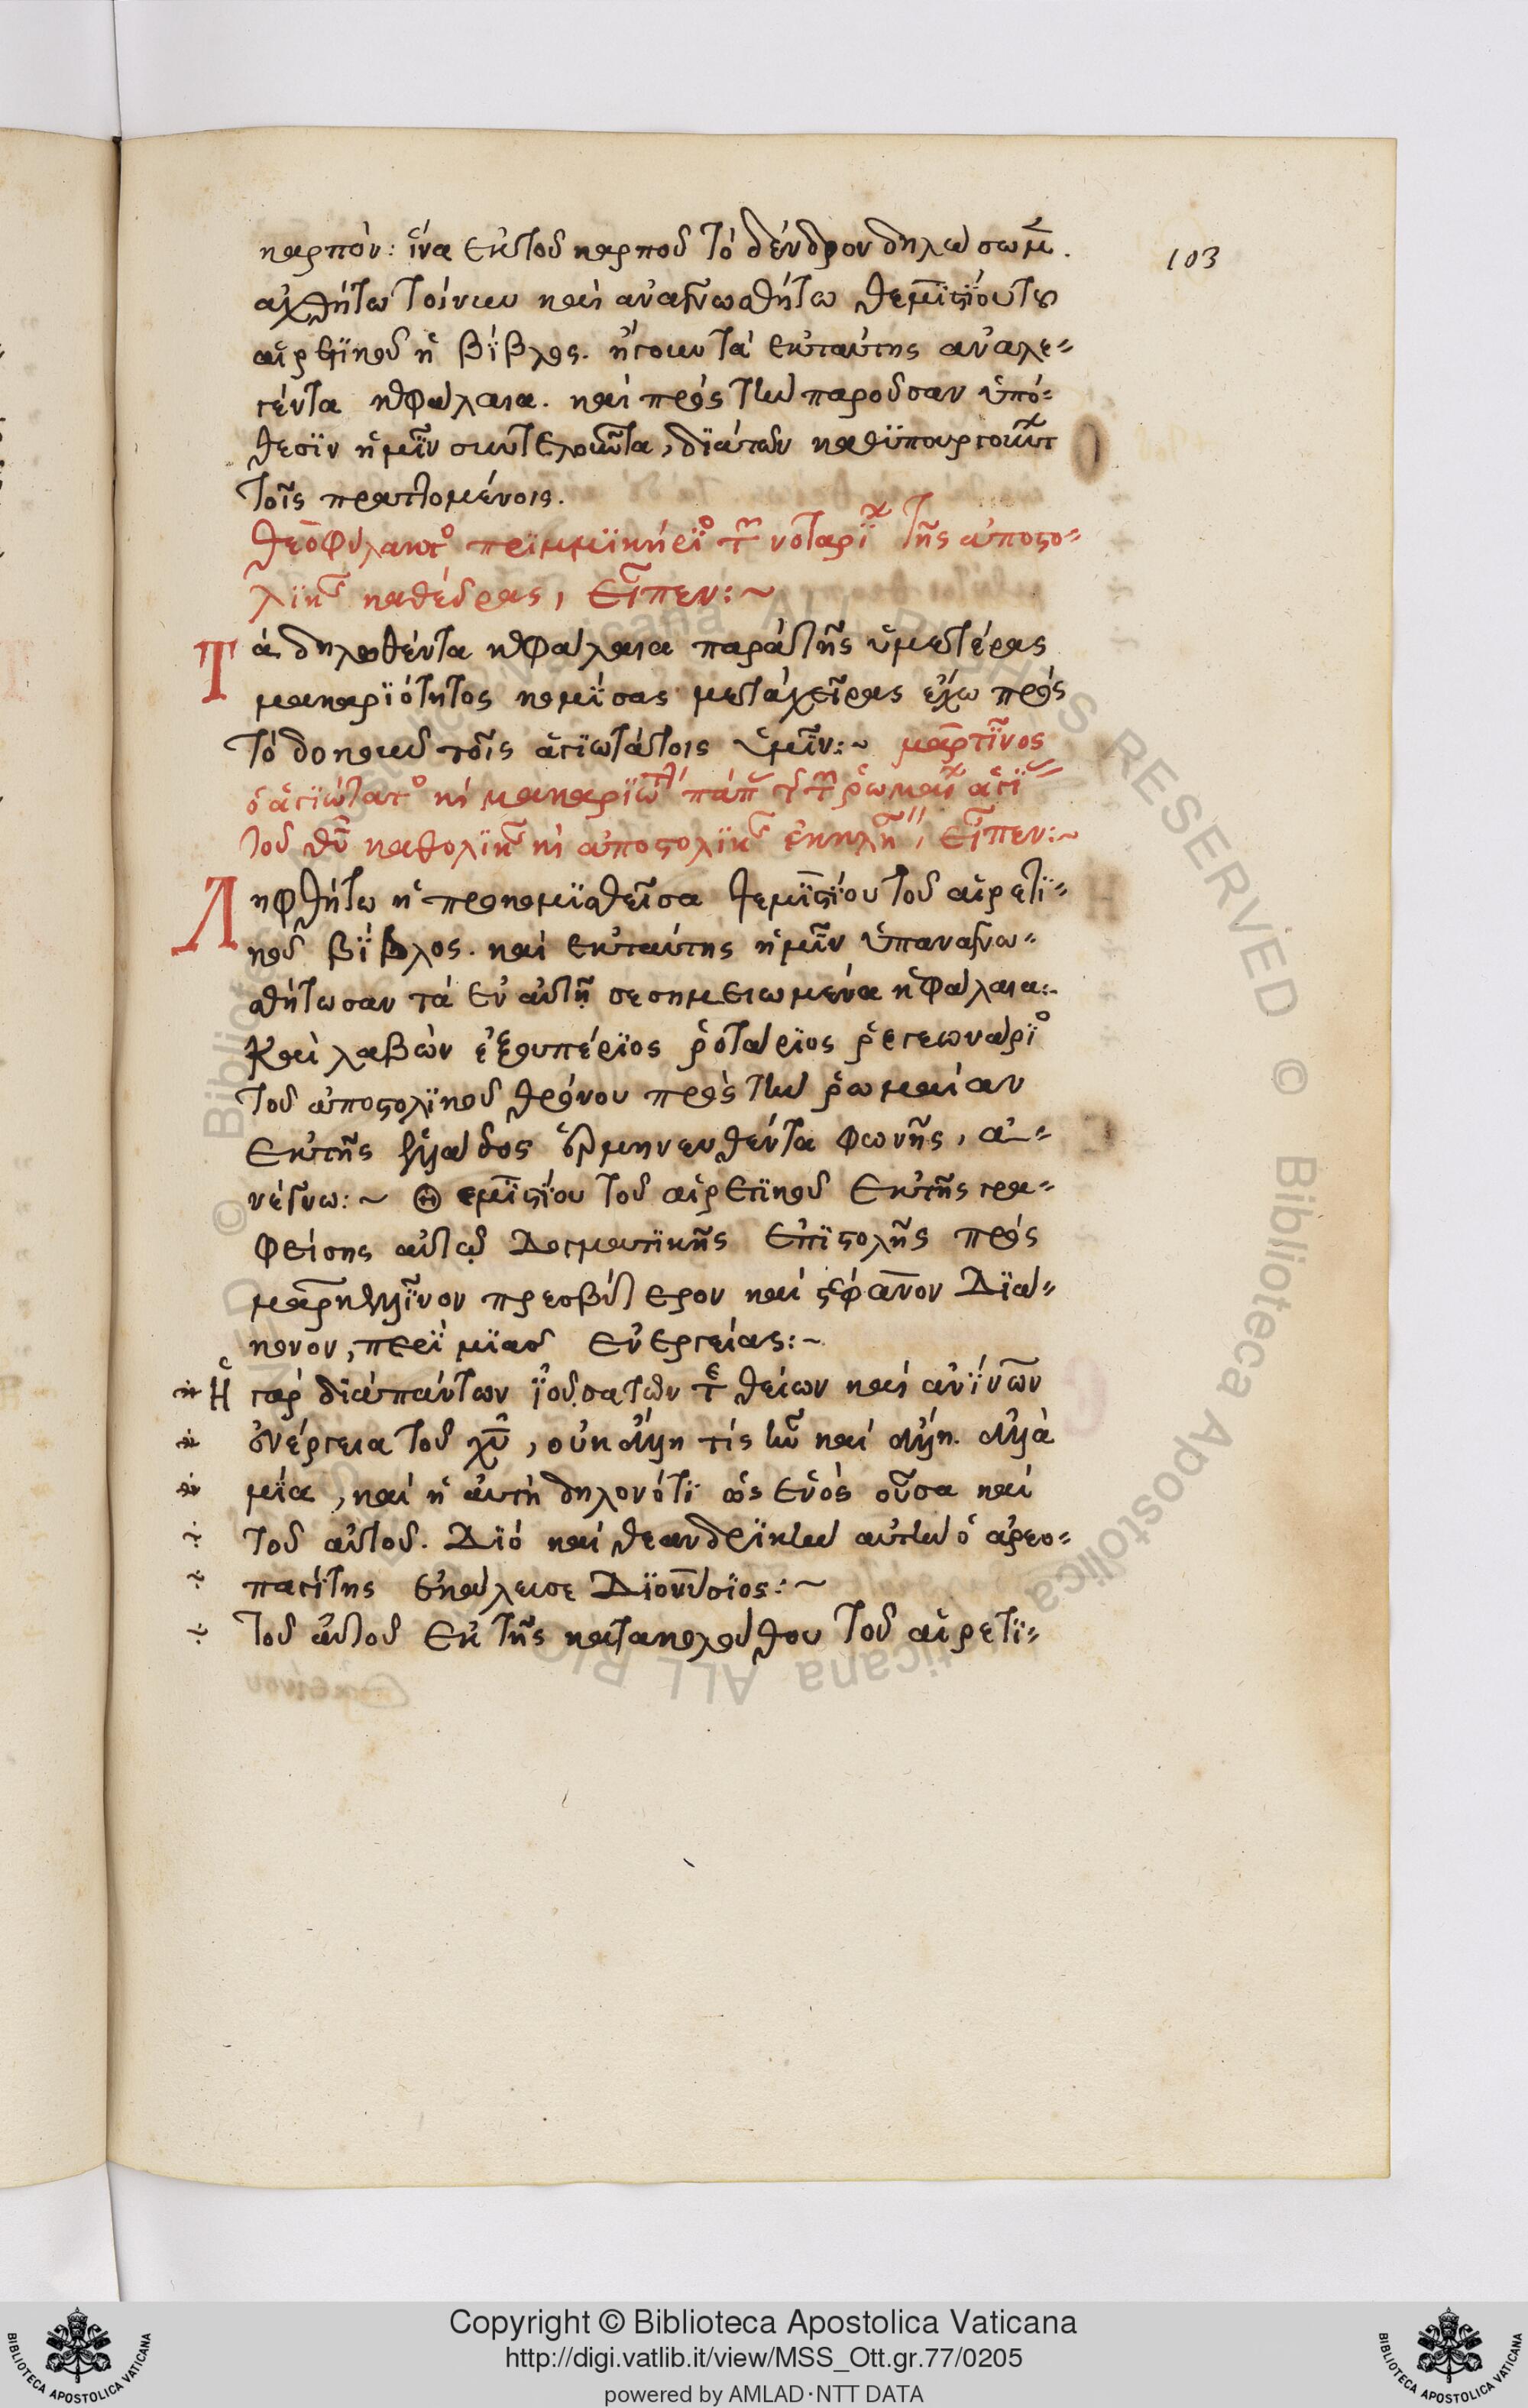 καρπὸν: ἵνα ἐκ τοῦ καρποῦ τὸ δένδρον δηλώσωμ̅.
103
ἀχθήτω τοίνυν καὶ ἀναγνωσθήτω θεμιστίου τοῦ
αἱρετικοῦ ἡ βίβλος. ἤγουν τὰ ἐκ ταύτης ἀναλε-
γέντα κεφάλαια. καὶ πρὸς τὴν παροῦσαν ὑπό-
θεσϊν ἡμῖν συντελοῦντα, διὰ τῶν
τοῖς πραττομένοις.
θεοφύλακτο πριμμικήριο τ νοταρί τῆς ἀποστο-
λικ καθέδρας, εἶπεν:~
Τὰ δηλωθέντα κεφάλαια παρὰ τῆς ὑμετέρας
μακαριότητος κομίσας μετὰ χεῖρας ἔχω πρὸς
τὸ δοκοῦν τοῖς ἁγιωτάτοις ὑμῖν:~ μαρτῖνος
ὁ ἁγιώτατο κὶ μακαριώτ πάπ τ τ ῥωμαί ἁγί
τοῦ θῦ καθολικ κὶ ἀποστολικ ἐκκλη, εἶπεν:~
Ληφθήτω ἡ προκομισθεῖσα θεμιστίου τοῦ αἱρετι-
κοῦ βίβλος. καὶ ἐκ ταύτης ἡμῖν ὑπαναγνω-
σθήτωσαν τὰ ἐν αὐτῇ σεσημειωμένα κεφάλαια:-
Καὶ λαβὼν ἐξουπέριος ῥοτάριος ῥεγεωνάριο
τοῦ ἀποστολικοῦ θρόνου πρὸς τὴν ῥωμαίαν
ἐκ τῆς ἑλλάδος ἑρμηνευθέντα φωνῆς, ἀ-
νέγνω:~ Θεμιστίου τοῦ αἱρετικοῦ ἐκ τῆς γρα-
φείσης αὐτῷ Δογματικῆς ἐπιστολῆς πρὸς
μαρκελλῖνον πρεσβύτερον καὶ στέφανον Διά-
κονον, περὶ μϊᾶς ἐνεργείας:~
Ἡ γὰρ διὰ πάντων ἰοῦσα τῶν τε θείων καὶ ἀνίνων
ἐνέργεια τοῦ χῦ, οὐκ ἄλλη τίς ἦν καὶ ἄλλη. ἀλλὰ
μία, καὶ ἡ αὐτὴ δηλονότι ὡς ἑνὸς οὖσα καὶ
τοῦ αὐτοῦ. Διὸ καὶ θεανδρικὴν αὐτὴν ὁ ἀρεο-
παγίτης ἐκάλεισε Διονύσιος:~
τοῦ αὐτοῦ ἐκ τῆς κατακολούθου τοῦ αἱρετι-
Copyright © Biblioteca Apostolica Vaticana
http://digi.vatlib.it/view/MSS_Ott.gr.77/0205
powered by AMLAD·NTT DATA